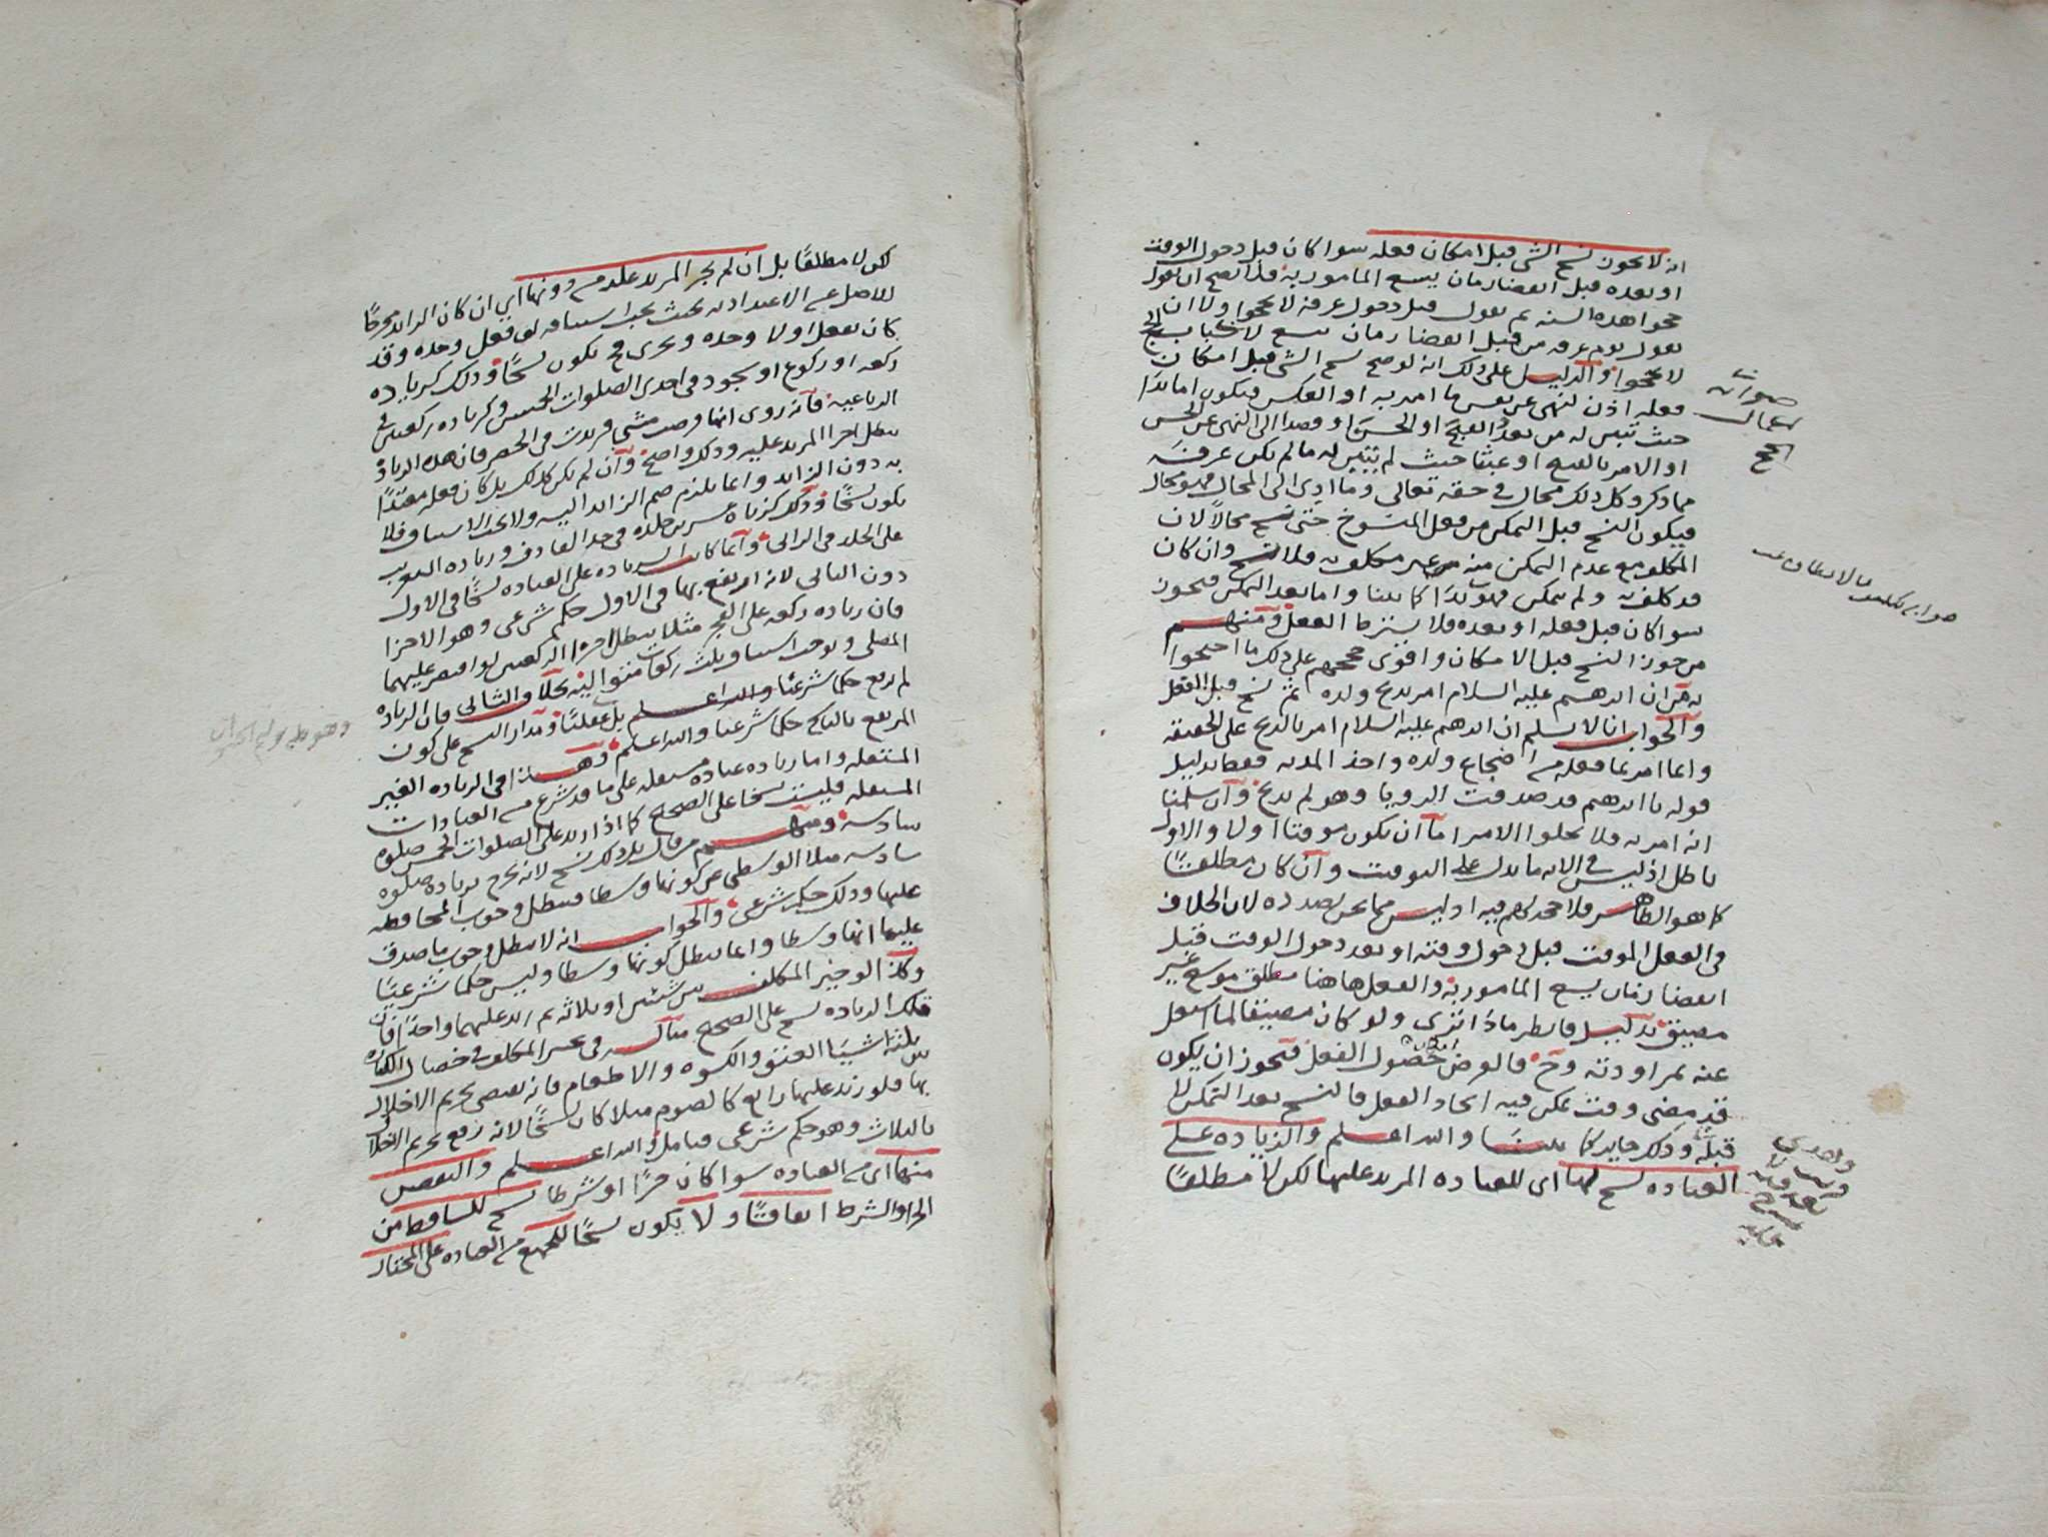 انه لا يجوز نسخ الشي قبل امكان فعله سوا كان قبل دخول الوقت
او بعده قبل انقضا زمان يسع المامور به فلا يصح ان يقول
حجوا هذه السنه ثم يقول قبل دخول عرفه لا تحجوا ولا ان
يقول يوم عرفه من قبل انقضا زمان يسع
لا تحجوا والدليل على ذلك انه لو صح نسخ الشي قبل امكان
فعله اذن لنهى عن نفس ما امر به او العكس فيكون اما بدا
حيث تبين له من بعد القبح او الحسن او قصدا الى النهى عن الحسن
او الامر بالقبيح او عبثا حيث لم يتبين له ما لم يكن عرفه
مما ذكر وكل ذلك محال في حقه تعالى وما ادى الى المحال فهو محال
فيكون النسخ قبل التمكن من فعل المنسوخ محالا لان
المكلف مع عدم التمكن منه غير مكلف به فلا نسخ وان كان
قد كلف به ولم يتمكن فهو بدا كما بينا واما بعد التمكن فيجوز
سوا كان قبل فعله او بعده فلا يشترط الفعل ومنهم
من جوز النسخ قبل الامكان واقوى حججهم على ذلك ما احتجوا
به من ان ابرهيم عليه السلام امر بذبح ولده ثم نسخ قبل الفعل
والجواب انا لا نسلم ان ابرهيم عليه السلام امر بالذبح على الحقيقه
وانما امر بما فعله من اضجاع ولده واخذ المديه فقط بدليل
قوله يا ابرهيم قد صدقت الرويا وهو لم يذبح وان سلمنا
انه امر به فلا يخلوا الامر اما ان يكون موقتا اولا والاول
باطل اذ ليس في الايه ما يدل على التوقيت وان كان مطلقا
كما هو الظاهر فلا حجه لهم فيه اذ ليس مما نحن بصدده لان الخلاف
في الفعل الموقت قبل دخول وقته او بعد دخول الوقت قبل
انقضا زمان يسع المامور به والفعل هاهنا مطلق موسع غير
مضيق بدليل فانظر ماذا ترى ولو كان مضيقا لما اشتغل
عنه بمراودته وح فالفرض حصول الفعل فيجوز ان يكون
قد مضى وقت يمكن فيه ايجاد الفعل فالنسخ بعد التمكن لا
قبله وذلك جايز كما بينا والله اعلم والزياده على
العباده نسخ لها اى للعباده المزيد عليها لكن لا مطلقا
لكن لا مطلقا بل ان لم يجز المزيد عليه من دونها اي ان كان الزايد مخرجا
للاصل عن الاعتداد به بحيث يجب استينافه لو فعل وحده وقد
كان يفعل اولا وحده ويجزى فح يكون نسخا وذلك كزياده
ركعه او ركوع او سجود في احدى الصلوات الخمس وكزياده ركعتين في
الرباعيه فانه روى انها فرضت مثنى فزيدت في الحضر فان هذه الزياده
يبطل اجزا المزيد عليه وذلك واضح وان لم يكن كذلك بل كان فعله معتدا
به دون الزايد وانما يلزم ضم الزايد اليه ولا يجب الاستيناف فلا
يكون نسخا وذلك كزياده عشرين جلده في حد القاذف وزياده التغريب
على الجلد في الزاني وانما كانت الزياده على العباده نسخا في الاول
دون الثاني لانه ارتفع بها في الاول حكم شرعى وهو الاجزا
فان زياده ركعه على الفجر مثلا يبطل اجزا الركعتين لو اقتصر عليهما
المصلى ويوجب استيناف ثلث ركعات متواليه بخلاف الثاني فان الزياده
لم ترفع حكما شرعيا بل عقليا ومدار النسخ على كون
المرتفع بالناسخ حكما شرعيا والله اعلم وهذا في الزياده الغير
المستقله واما زياده عباده مستقله على ما قد شرع من العبادات
المستقله فليست نسخا على الصحيح كما اذا زيد على الصلوات الخمس صلوه
سادسه ومنهم من قال بل ذلك نسخ لانه يخرج بزياده صلوه
سادسه مثلا الوسطى عن كونها وسطا فيبطل وجوب المحافظه
عليها وذلك حكم شرعى والجواب انه لا يبطل وجوب ما صدق
عليها انها وسطا وانما يبطل كونها وسطا وليس حكما شرعيا
وكذا لو خير المكلف بين شيئين او ثلاثه ثم زيد عليهما واحدا فان
تلك الزياده نسخ على الصحيح مثاله في تخيير المكلف في خصال الكفاره
بين ثلثة اشيا العتق والكسوه والاطعام فانه يقتضى تحريم الاخلال
بها فلو زيد عليها رابع كالصوم مثلا كان نسخا لانه رفع تحريم الاخلال
بالثلاث وهو حكم شرعى فتامل والله اعلم والنقص
منها اى من العباده سوا كان جزا او شرطا نسخ للساقط من
الجزا والشرط اتفاقا ولا يكون نسخا للجميع من العباده على المختار